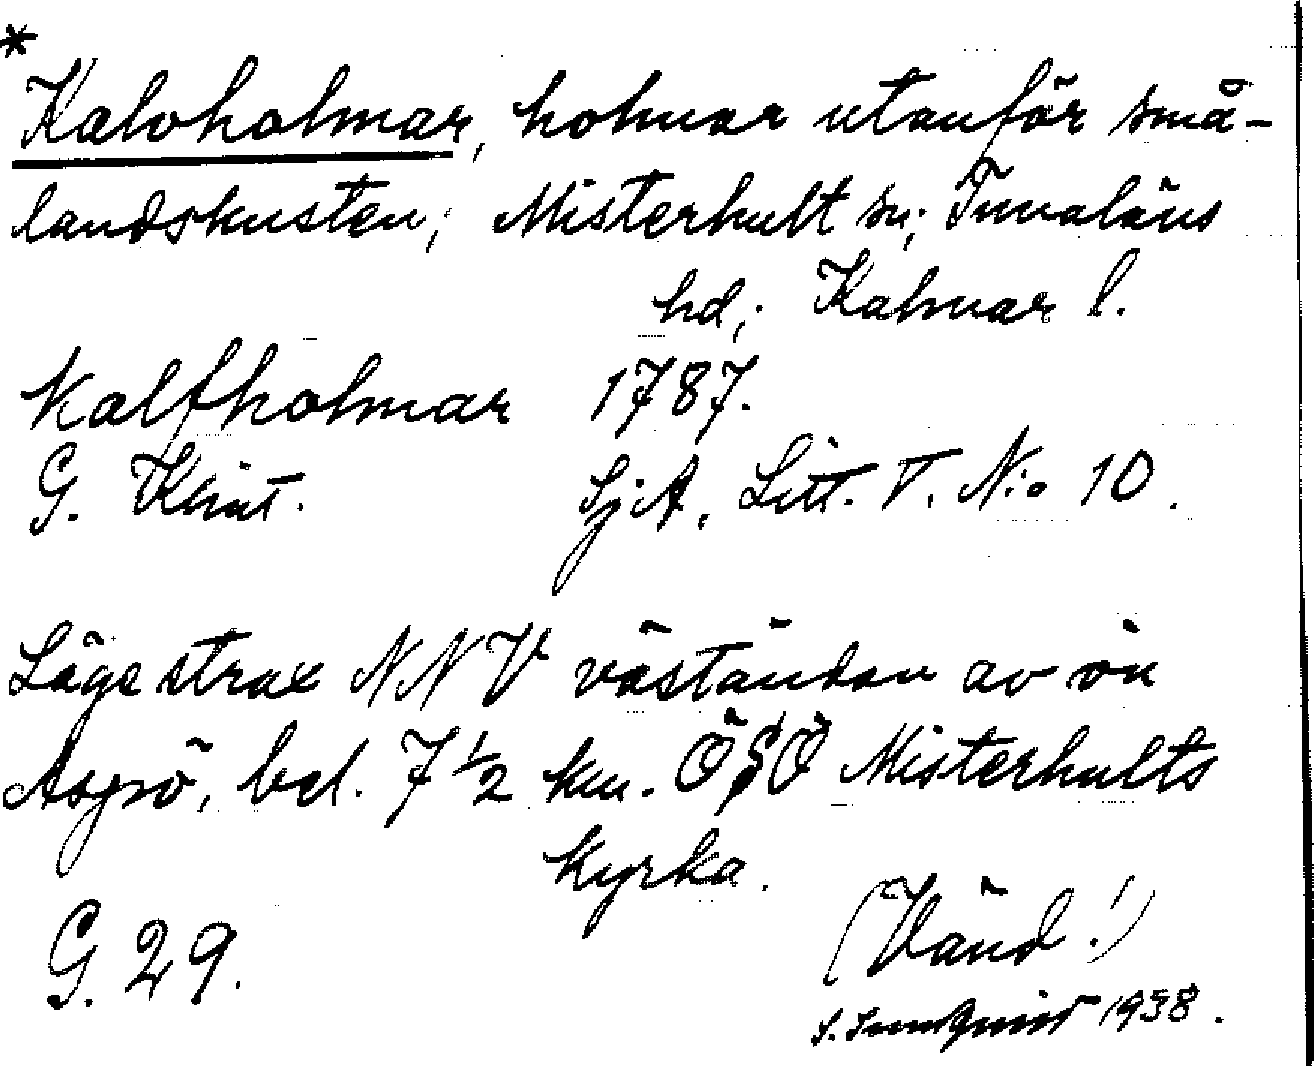 *
Kalvholmar, holmar utanför små-
landskusten; Misterhult sn; Tunaläns
hd; Kalmar l.
Kalfholmar 1787.
G. Klint. SjA, Litt. T. N:o 10.
Läge strax NNV väständan av ön
Aspö, bel. 7 1/2 km. ÖSÖ Misterhults
kyrka.
(Vänd!)
G. 29.
S. Sundquist 1938.